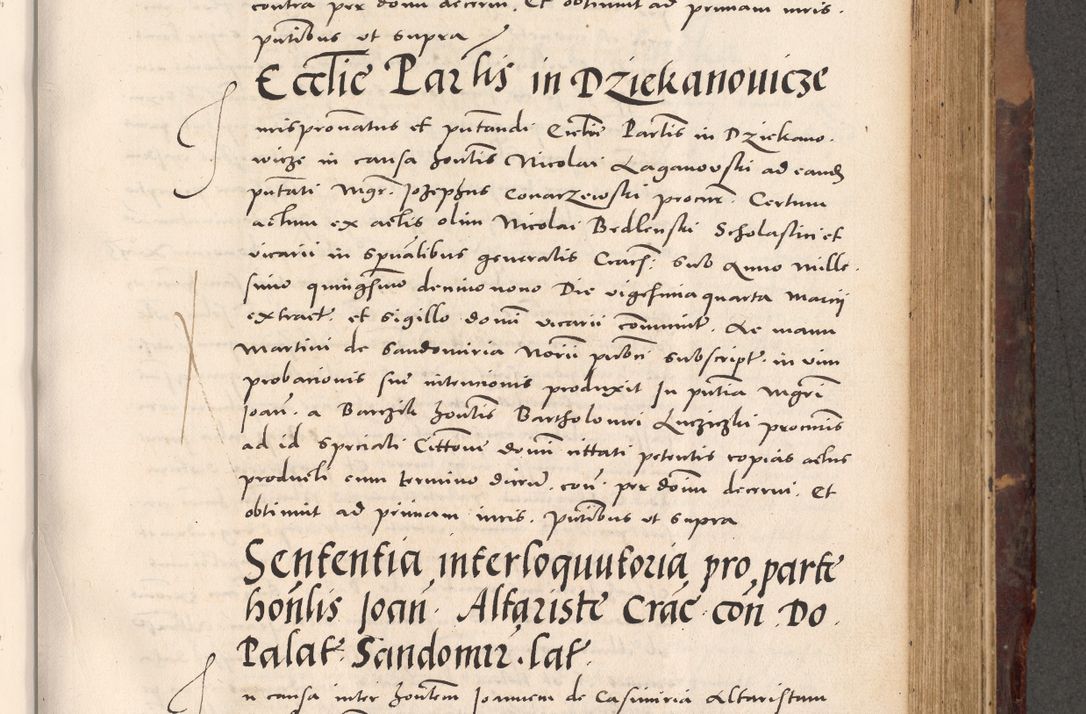 contra per domi decerni. Et obtinuit ad primam iuris.
pntibus ut supra
Ecclie Parlis in Dziekanouicze
Jurispronatus et putandi Ecclie Parlis in Dziekano.
wicze in causa honlis Nicolai Laganovski ad eand
putati Mgr. Josephus Conarzewski procur. Certum
actum ex actis olim Nicolai Bedlenski Scholastici et
vicarii in spualibus generalis Cracs: sub Anno Mille.
simo quingsmo decimo nono Die vigesima quarta Marcij
extract. et sigillo domi vicarii communit. Ac manu
Martini de Sandomiria Norii pubci subscript. in vim
probationis sue intencionis produxit In pntia Mgri
Joan. a Barzik honlis Bartholomei procuris
ad id speciali Citione domi cittati petentis copias actus
producti cum termino dicend. con. per domi decerni. Et
obtinuit ad primam iuris. Pntibus ut supra
Sententia interloquutoria pro parte
honlis Joan. Altariste Crac con Do.
Palat. Sandomir. lat.
In causa inter honlem Joannem de Casimiria Altaristam